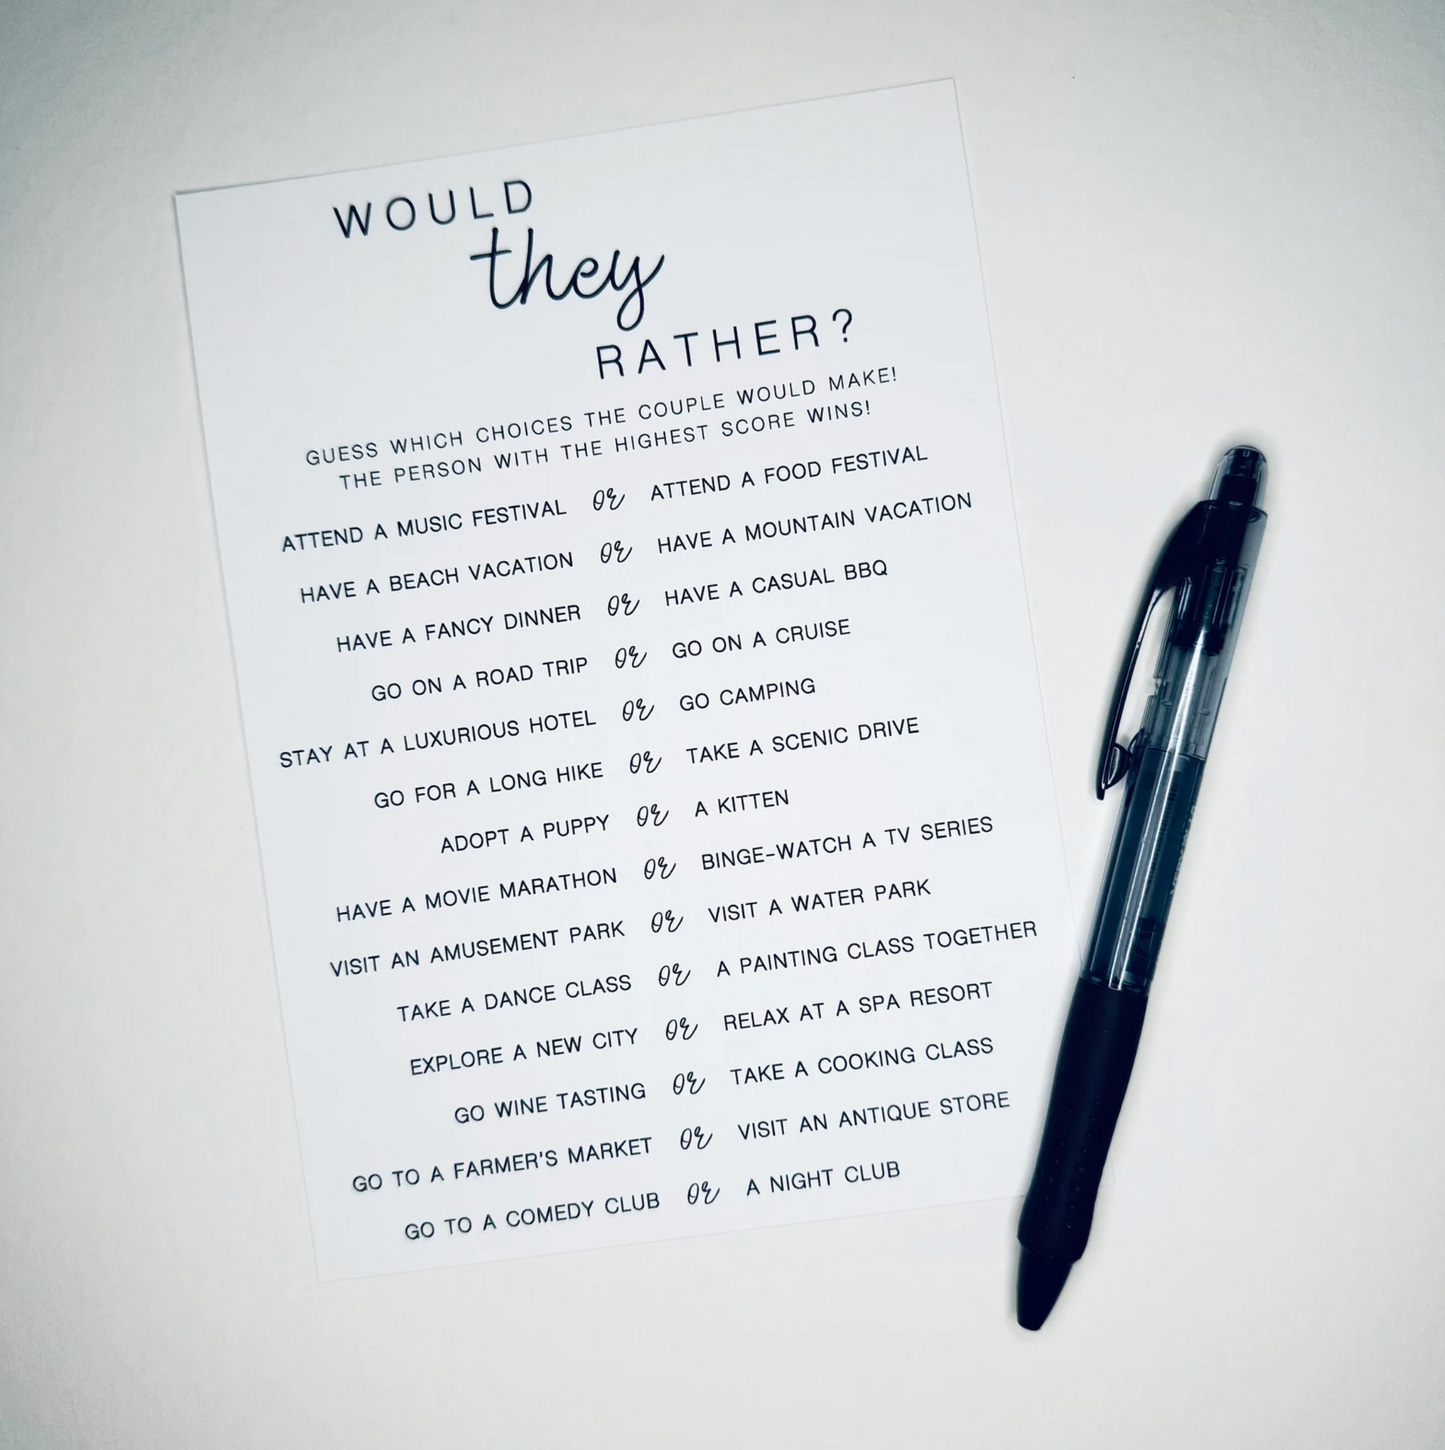 WOULD
they
RATHER?
GUESS WHICH CHOICES THE COUPLE WOULD MAKE!
THE PERSON WITH THE HIGHEST SCORE WINS!
ATTEND A MUSIC FESTIVAL OR ATTEND A FOOD FESTIVAL
HAVE A BEACH VACATION OR HAVE A MOUNTAIN VACATION
HAVE A FANCY DINNER OR HAVE A CASUAL BBQ
GO ON A ROAD TRIP OR GO ON A CRUISE
STAY AT A LUXURIOUS HOTEL OR GO CAMPING
GO FOR A LONG HIKE OR TAKE A SCENIC DRIVE
ADOPT A PUPPY OR A KITTEN
HAVE A MOVIE MARATHON OR BINGE-WATCH A TV SERIES
VISIT AN AMUSEMENT PARK OR VISIT A WATER PARK
TAKE A DANCE CLASS OR A PAINTING CLASS TOGETHER
EXPLORE A NEW CITY OR RELAX AT A SPA RESORT
GO WINE TASTING OR TAKE A COOKING CLASS
GO TO A FARMER'S MARKET OR VISIT AN ANTIQUE STORE
GO TO A COMEDY CLUB OR A NIGHT CLUB